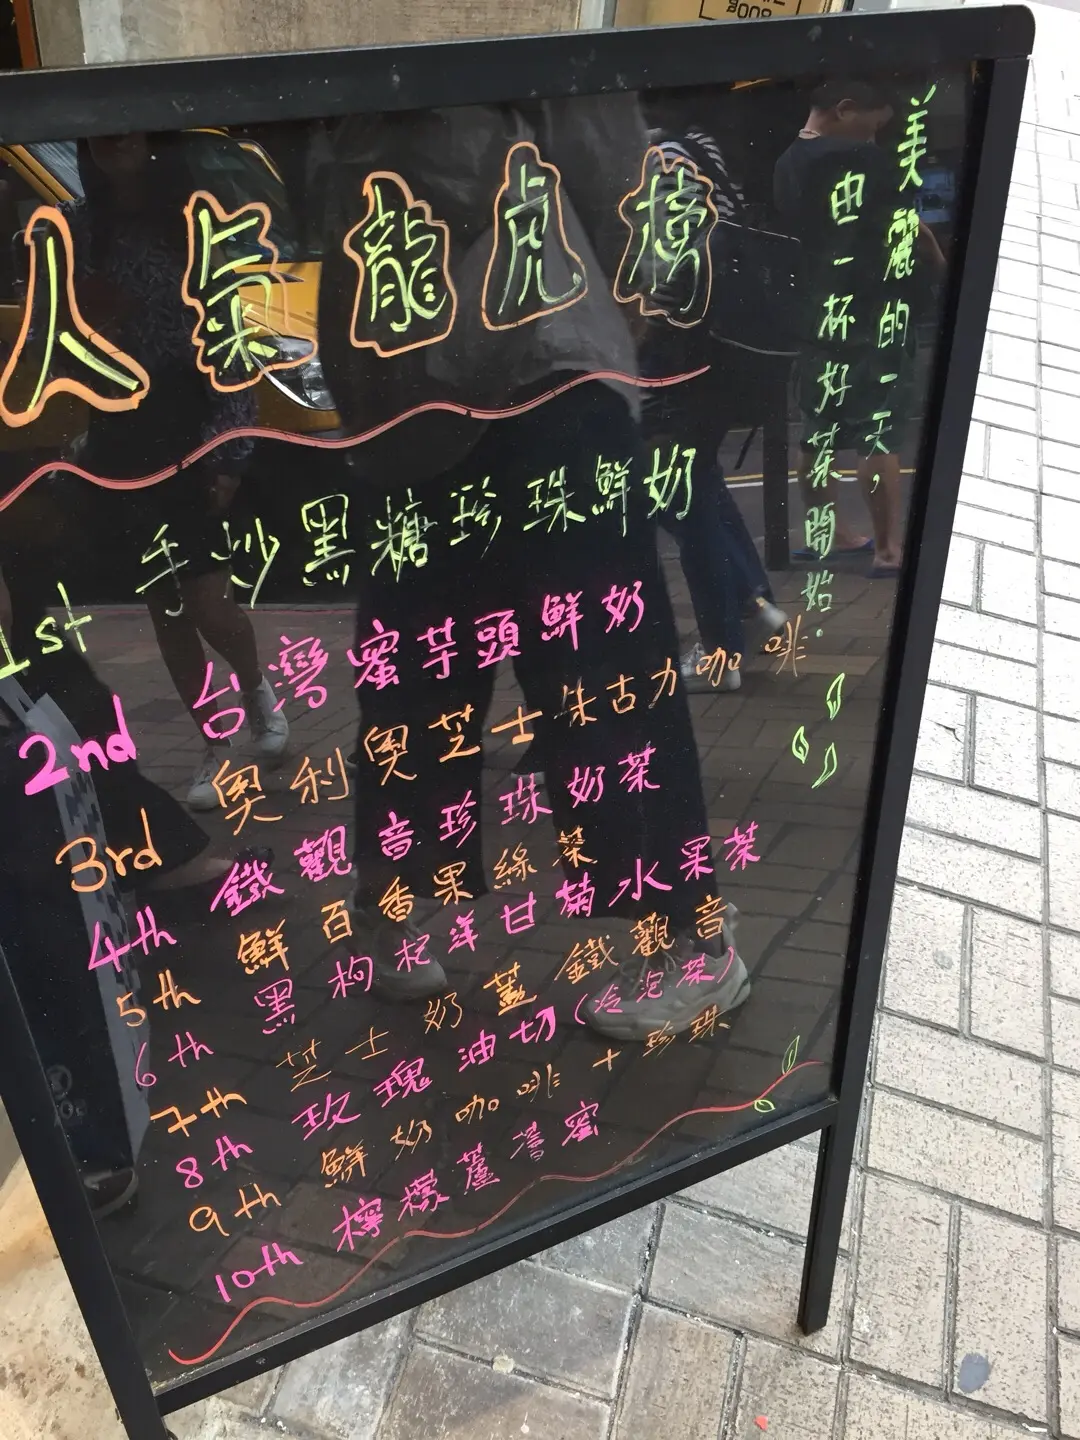 人氣龍虎榜
1st 手炒黑糖珍珠鮮奶
2nd 台灣蜜芋頭鮮奶
3rd 奧利奧芝士朱古力咖啡
4th 鐵觀音珍珠奶茶
5th 鮮百香果綠茶
6th 黑枸杞洋甘菊水果茶
7th 芝士奶蓋鐵觀音
8th 玫瑰油切(冷泡茶)
9th 鮮奶咖啡+珍珠
10th 檸檬蘆薈蜜
美麗的一天,
由一杯好茶開始.